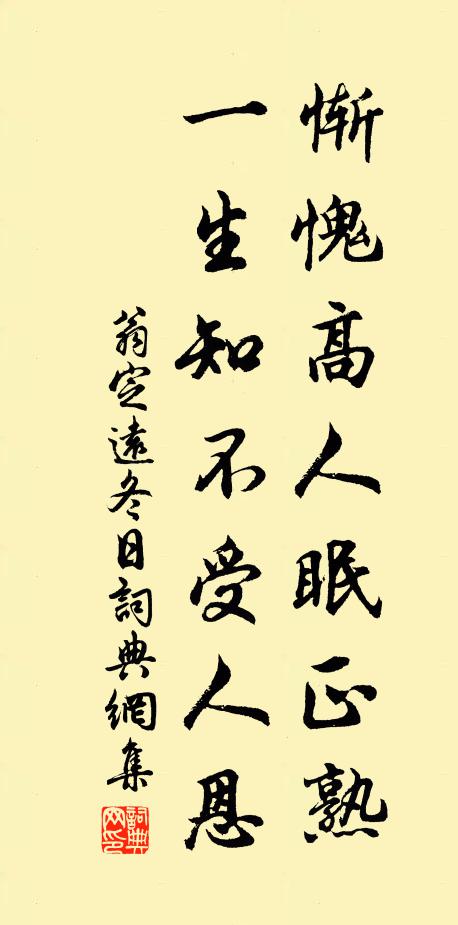 慚愧高人眠正熟
一生知不受人恩
翁定遠冬日詞典網集
詞典網印